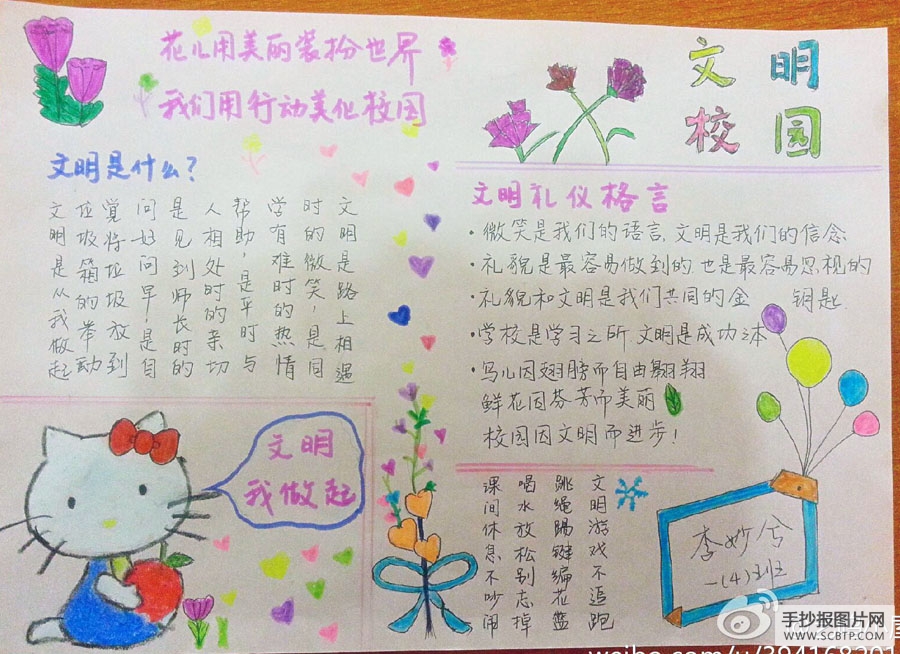 花儿用美丽装扮世界
我们用行动美化校园
文明
校园
文明是什么?
文明是路上相遇
时的微笑,是同
学有难时的热情
帮助,是平时与
人相处时的亲切
是见到师长时的
问好问早,是自
觉将垃圾放到
垃圾箱的举动
文明是从我做起
文明礼仪格言
·微笑是我们的语言,文明是我们的信念
·礼貌是最容易做到的,也是最容易忽视的
·礼貌和文明是我们共同的金 钥匙
·学校是学习之所 文明是成功之本
·鸟儿因翅膀而自由翱翔
鲜花因芬芳而美丽
校园因文明而进步!
文明
我做起
文明游戏不追跑
跳绳踢键编花蓝
喝水放松别忘掉
课间休息不吵闹
李妙兮
一(4)班
手抄报图片网
WWW.SCBTP.COM